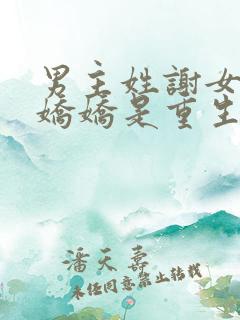 男主姓謝女
嬌嬌是重生
潘天壽
未經同意禁止轉載